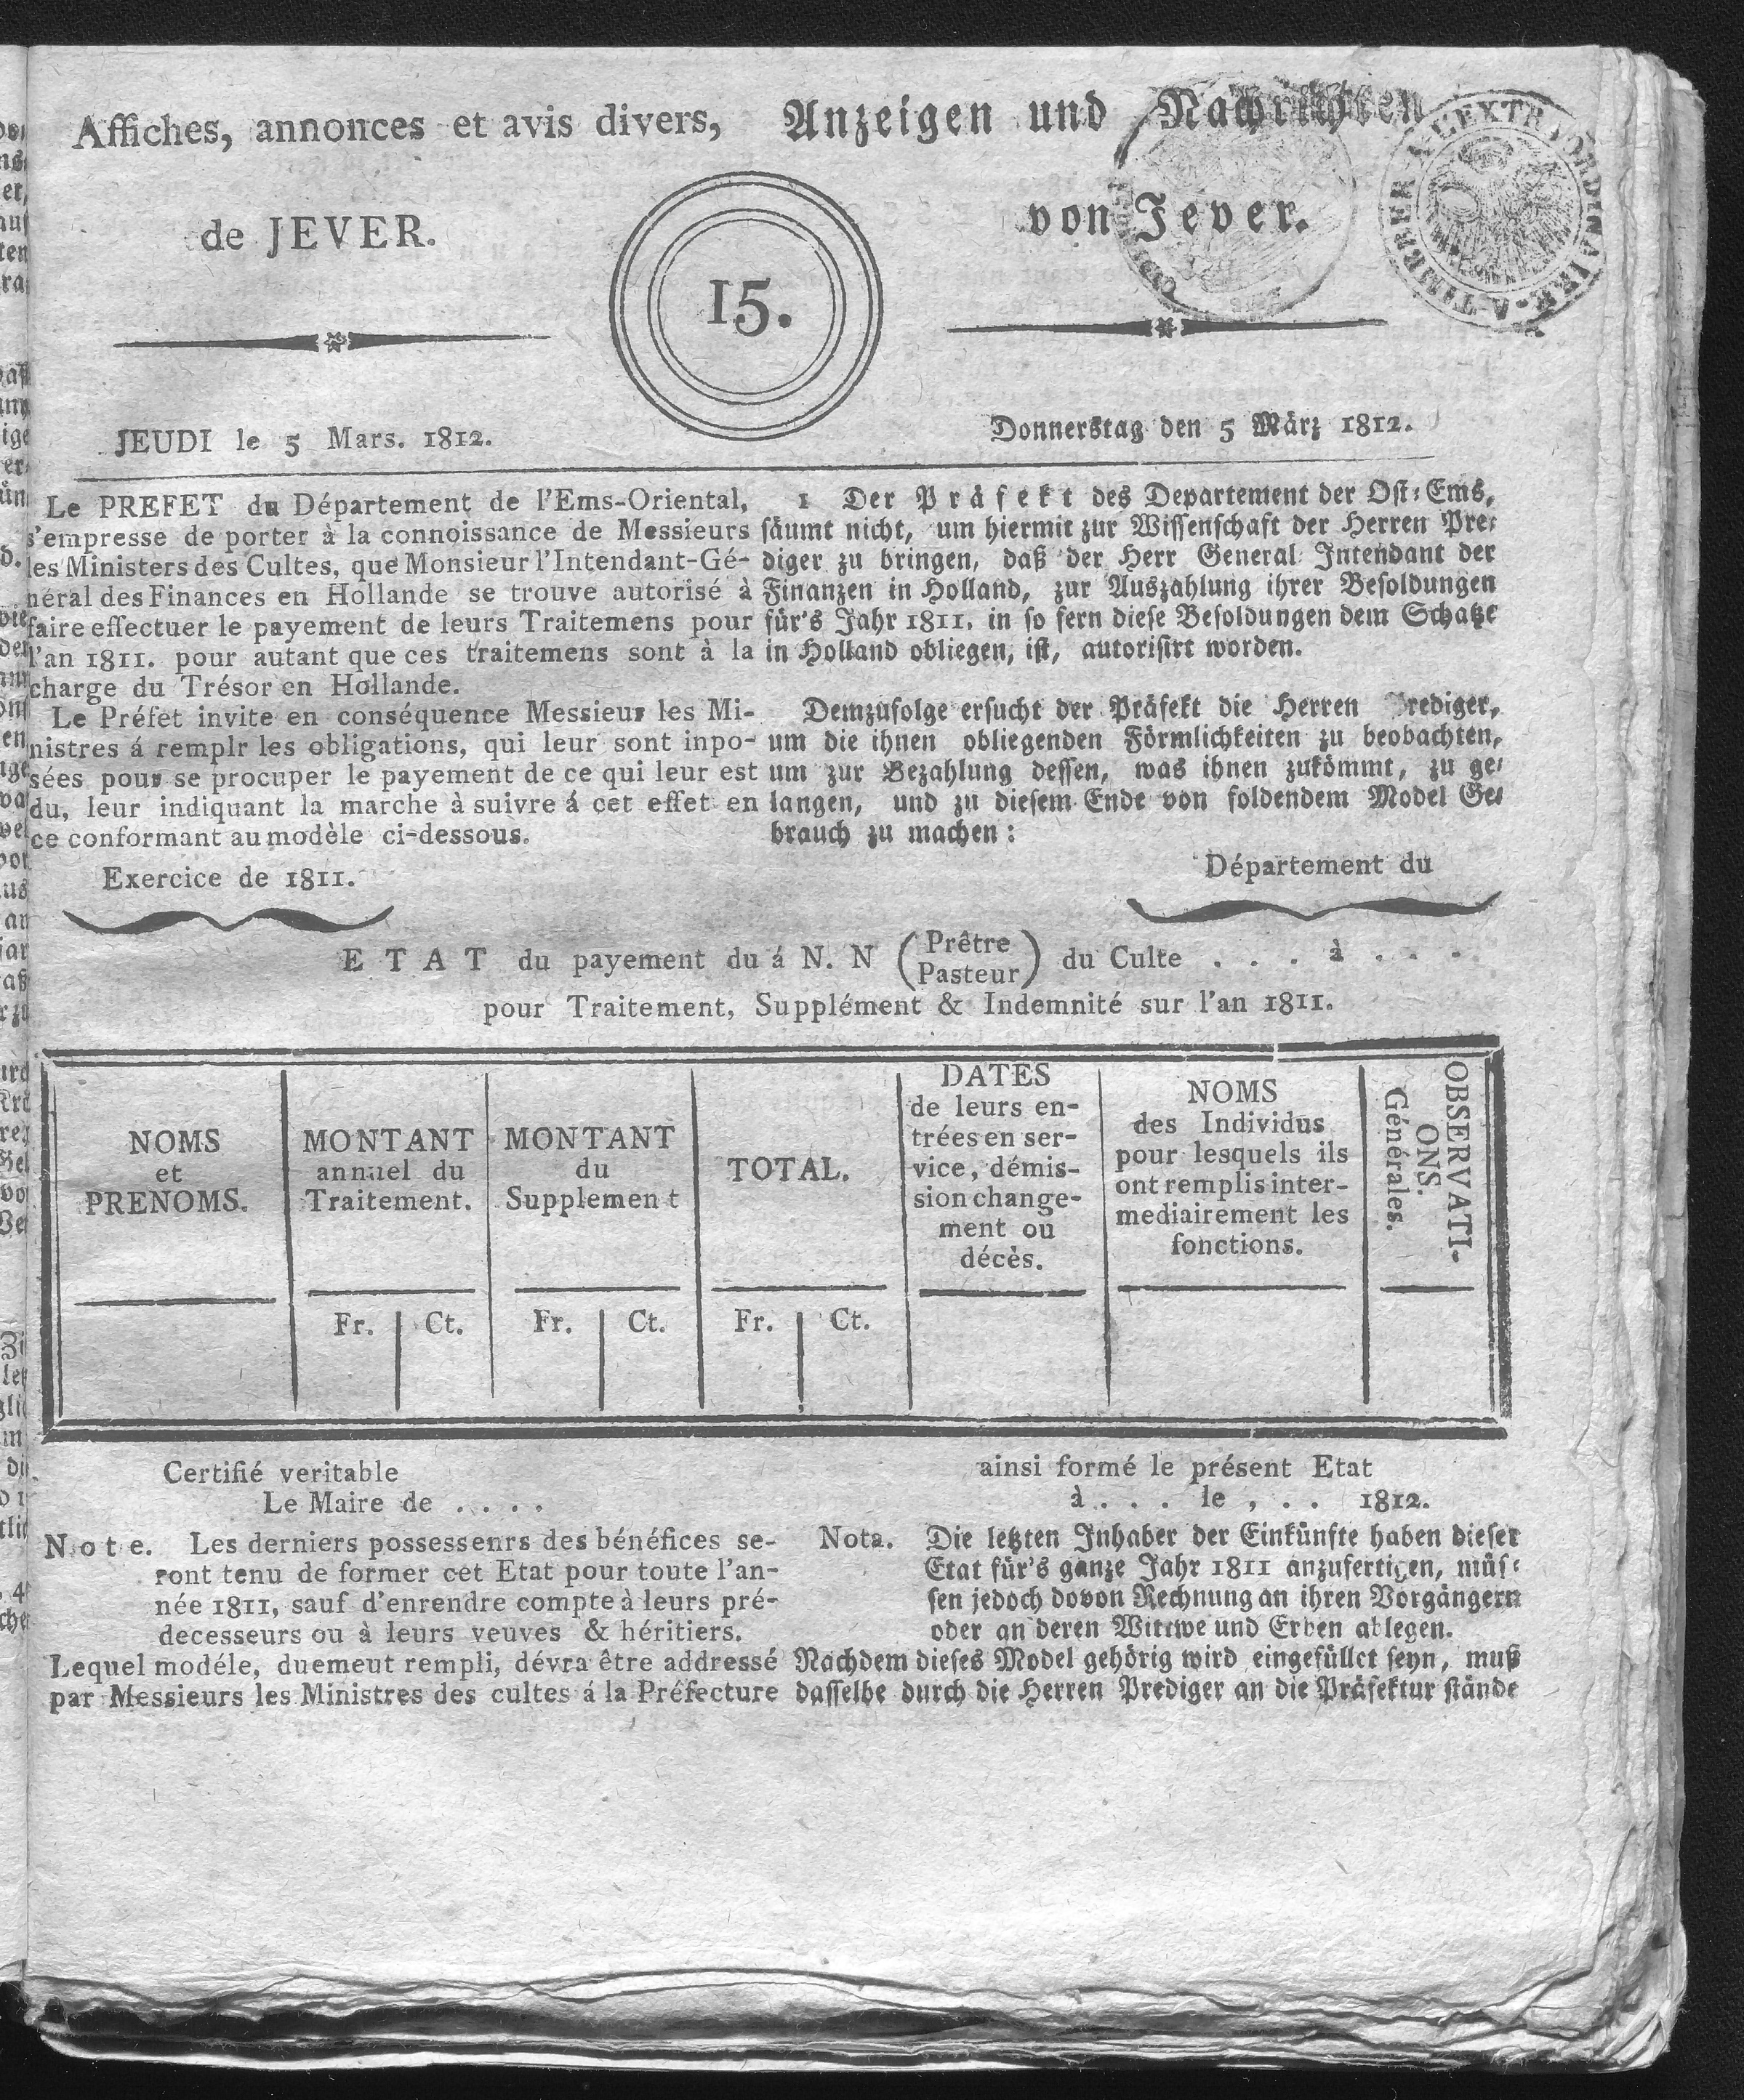 Affiches, annonces et avis divers,
de JEVER.
Anzeigen und Nachrichten
von Jever.
A TIMBRE EXTRAORDINAIRE
15.
JEUDI le 5 Mars. 1812.
Donnerstag den 5 März 1812.
Le PREFET du Département de l'Ems-Oriental,
s'empresse de porter à la connoissance de Messieurs
les Ministers des Cultes, que Monsieur l'Intendant-Gé-
néral des Finances en Hollande se trouve autorisé à
faire effectuer le payement de leurs Traitemens pour
l'an 1811. pour autant que ces traitemens sont à la
charge du Trésor en Hollande.
Le Préfet invite en conséquence Messieur les Mi-
nistres á remplr les obligations, qui leur sont inpo-
sées pour se procuper le payement de ce qui leur est
du, leur indiquant la marche à suivre á cet effet en
ce conformant au modèle ci-dessous.
1 Der Präfekt des Departement der Ost-Ems,
säumt nicht, um hiermit zur Wissenschaft der Herren Pre-
diger zu bringen, daß der Herr General Intendant der
Finanzen in Holland, zur Auszahlung ihrer Besoldungen
für's Jahr 1811. in so fern diese Besoldungen dem Schatze
in Holland obliegen, ist, autorisirt worden.
Demzufolge ersucht der Präfekt die Herren Prediger,
um die ihnen obliegenden Förmlichkeiten zu beobachten,
um zur Bezahlung dessen, was ihnen zukömmt, zu ge-
langen, und zu diesem Ende von foldendem Model Ge-
brauch zu machen:
Exercice de 1811.
Département du
ETAT du payement du á N. N (Prêtre
Pasteur) du Culte . . . à . . .
pour Traitement, Supplément & Indemnité sur l'an 1811.
NOMS
et
PRENOMS.
MONTANT
annuel du
Traitement.
Fr. Ct.
MONTANT
du
Supplement
Fr. Ct.
TOTAL.
Fr. Ct.
DATES
de leurs en-
trées en ser-
vice, démis-
sion change-
ment ou
décès.
NOMS
des Individus
pour lesquels ils
ont remplis inter-
mediairement les
fonctions.
OBSERVATI-
ONS.
Générales.
Certifié veritable
Le Maire de . . . .
ainsi formé le présent Etat
à . . . le , . . 1812.
Note. Les derniers possessenrs des bénéfices se-
ront tenu de former cet Etat pour toute l'an-
née 1811, sauf d'enrendre compte à leurs pré-
decesseurs ou à leurs veuves & héritiers.
Lequel modéle, duemeut rempli, dévra être addressé
par Messieurs les Ministres des cultes á la Préfecture
Nota. Die letzten Inhaber der Einkünfte haben dieser
Etat für's ganze Jahr 1811 anzufertigen, müs-
sen jedoch dovon Rechnung an ihren Vorgängern
oder an deren Wittwe und Erben ablegen.
Nachdem dieses Model gehörig wird eingefüllet seyn, muß
dasselbe durch die Herren Prediger an die Präfektur stände